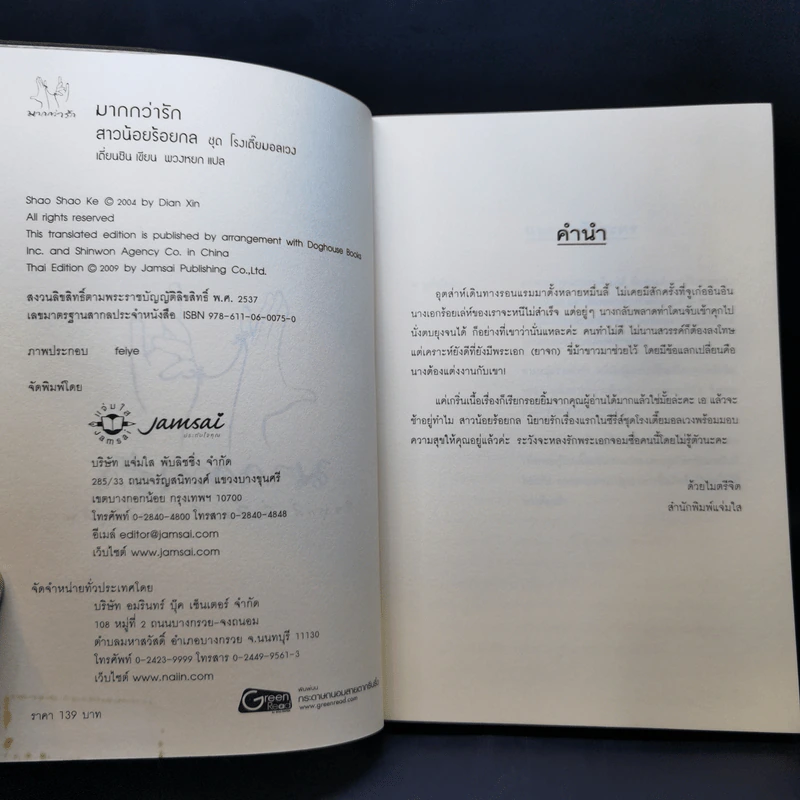 มากกว่ารัก
มากกว่ารัก
สาวน้อยร้อยกล ชุด โรงเตี๊ยมอลเวง
เตี่ยนซิน เขียน พวงหยก แปล
Shao Shao Ke © 2004 by Dian Xin
All rights reserved
This translated edition is published by arrangement with Doghouse Books
Inc. and Shinwon Agency Co. in China
Thai Edition © 2009 by Jamsai Publishing Co.,Ltd.
สงวนลิขสิทธิ์ตามพระราชบัญญัติลิขสิทธิ์ พ.ศ. 2537
เลขมาตรฐานสากลประจำหนังสือ ISBN 978-611-06-0075-0
ภาพประกอบ feiye
จัดพิมพ์โดย
แจ่มใส
Jamsai
Jamsai
บริษัท แจ่มใส พับลิชชิ่ง จำกัด
285/33 ถนนจรัญสนิทวงศ์ แขวงบางขุนศรี
เขตบางกอกน้อย กรุงเทพฯ 10700
โทรศัพท์ 0-2840-4800 โทรสาร 0-2840-4848
อีเมล์ editor@jamsai.com
เว็บไซต์ www.jamsai.com
จัดจำหน่ายทั่วประเทศโดย
บริษัท อมรินทร์ บุ๊ค เซ็นเตอร์ จำกัด
108 หมู่ที่ 2 ถนนบางกรวย-จงถนอม
ตำบลมหาสวัสดิ์ อำเภอบางกรวย จ.นนทบุรี 11130
โทรศัพท์ 0-2423-9999 โทรสาร 0-2449-9561-3
เว็บไซต์ www.naiin.com
Green
Read
พิมพ์บน
กระดาษถนอมสายตากรีนรี้ด
www.greenread.com
ราคา 139 บาท
คำนำ
อุตส่าห์เดินทางรอนแรมมาตั้งหลายหมื่นลี้ ไม่เคยมีสักครั้งที่จูเก๋ออินอิน
นางเอกร้อยเล่ห์ของเราจะหนีไม่สำเร็จ แต่อยู่ๆ นางกลับพลาดท่าโดนจับเข้าคุกไป
นั่งตบยุงจนได้ ก็อย่างที่เขาว่านั่นแหละค่ะ คนทำไม่ดี ไม่นานสวรรค์ก็ต้องลงโทษ
แต่เคราะห์ยังดีที่ยังมีพระเอก (ยาจก) ขี่ม้าขาวมาช่วยไว้ โดยมีข้อแลกเปลี่ยนคือ
นางต้องแต่งงานกับเขา!
แค่เกริ่นเนื้อเรื่องก็เรียกรอยยิ้มจากคุณผู้อ่านได้มากแล้วใช่มั้ยล่ะคะ เอ แล้วจะ
ช้าอยู่ทำไม สาวน้อยร้อยกล นิยายรักเรื่องแรกในซีรี่ส์ชุดโรงเตี๊ยมอลเวงพร้อมมอบ
ความสุขให้คุณอยู่แล้วค่ะ ระวังจะหลงรักพระเอกจอมซื่อคนนี้โดยไม่รู้ตัวนะคะ
ด้วยไมตรีจิต
สำนักพิมพ์แจ่มใส